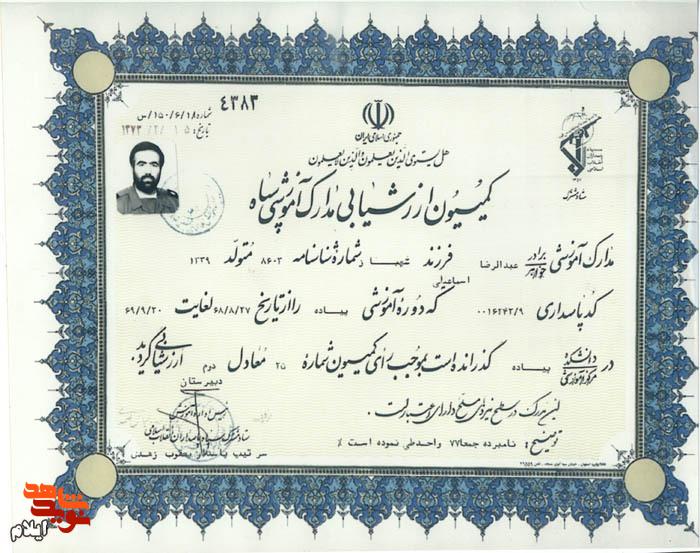 ۴۳۸۳
شماره ۱۵۰/۶/۱۸/س
تاریخ: ۱۳۷۳/۲/۱۵
جمهوری اسلامی ایران
سپاه پاسداران انقلاب اسلامی
ستاد مشترک
هل یستوی الذین یعلمون والذین لایعلمون
کمیسیون ارزشیابی مدارک آموزشی سپاه
مدارک آموزشی برادر خواهر عبدالرضا اسماعیلی فرزند شهباز شماره شناسنامه ۸۶۰۳ متولد ۱۳۳۹
کد پاسداری ۰۰۱۶۲۴۳/۹ که دوره آموزشی پیاده را از تاریخ ۶۸/۸/۲۷ لغایت ۶۹/۹/۲۰
در دانشکده مرکز آموزشی پیاده گذرانده است بموجب رأی کمیسیون شماره ۲۵ معادل دوم دبیرستان ارزشیابی گردید.
این مدرک در سطح نیروهای مسلح دارای اعتبار است.
توضیح: نامبرده جمعا ۷۷ واحد طی نموده است %
رئیس اداره آموزش
ستاد مشترک سپاه پاسداران انقلاب اسلامی
سرتیپ پاسدار یعقوب زهدی
نوید شاهد
ایلام